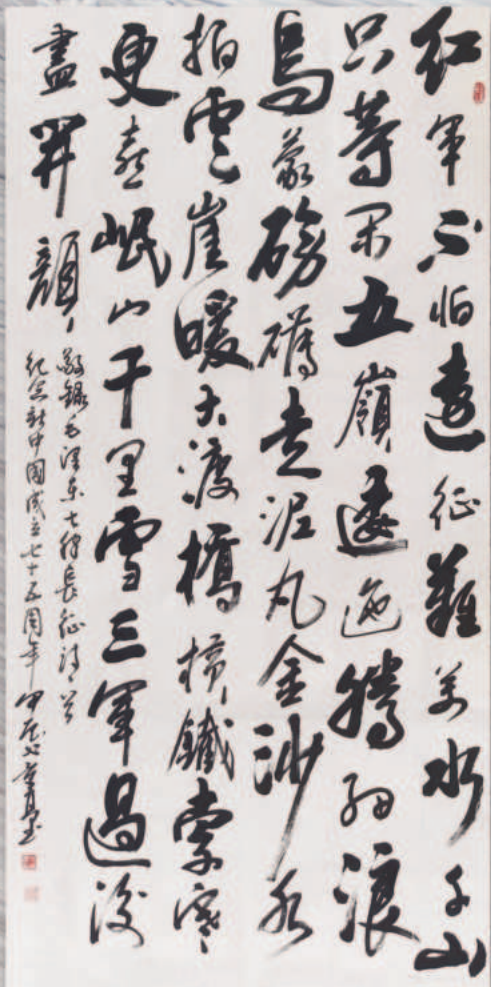 紅軍不怕遠征難万水千山
只等閑五嶺逶迤騰細浪
烏蒙磅礴走泥丸金沙水
拍雲崖暖大渡橋橫鐵索寒
更喜岷山千里雪三軍過後
盡開顏
敬錄毛澤東七律長征詩一首
紀念新中國成立七十五周年 甲辰